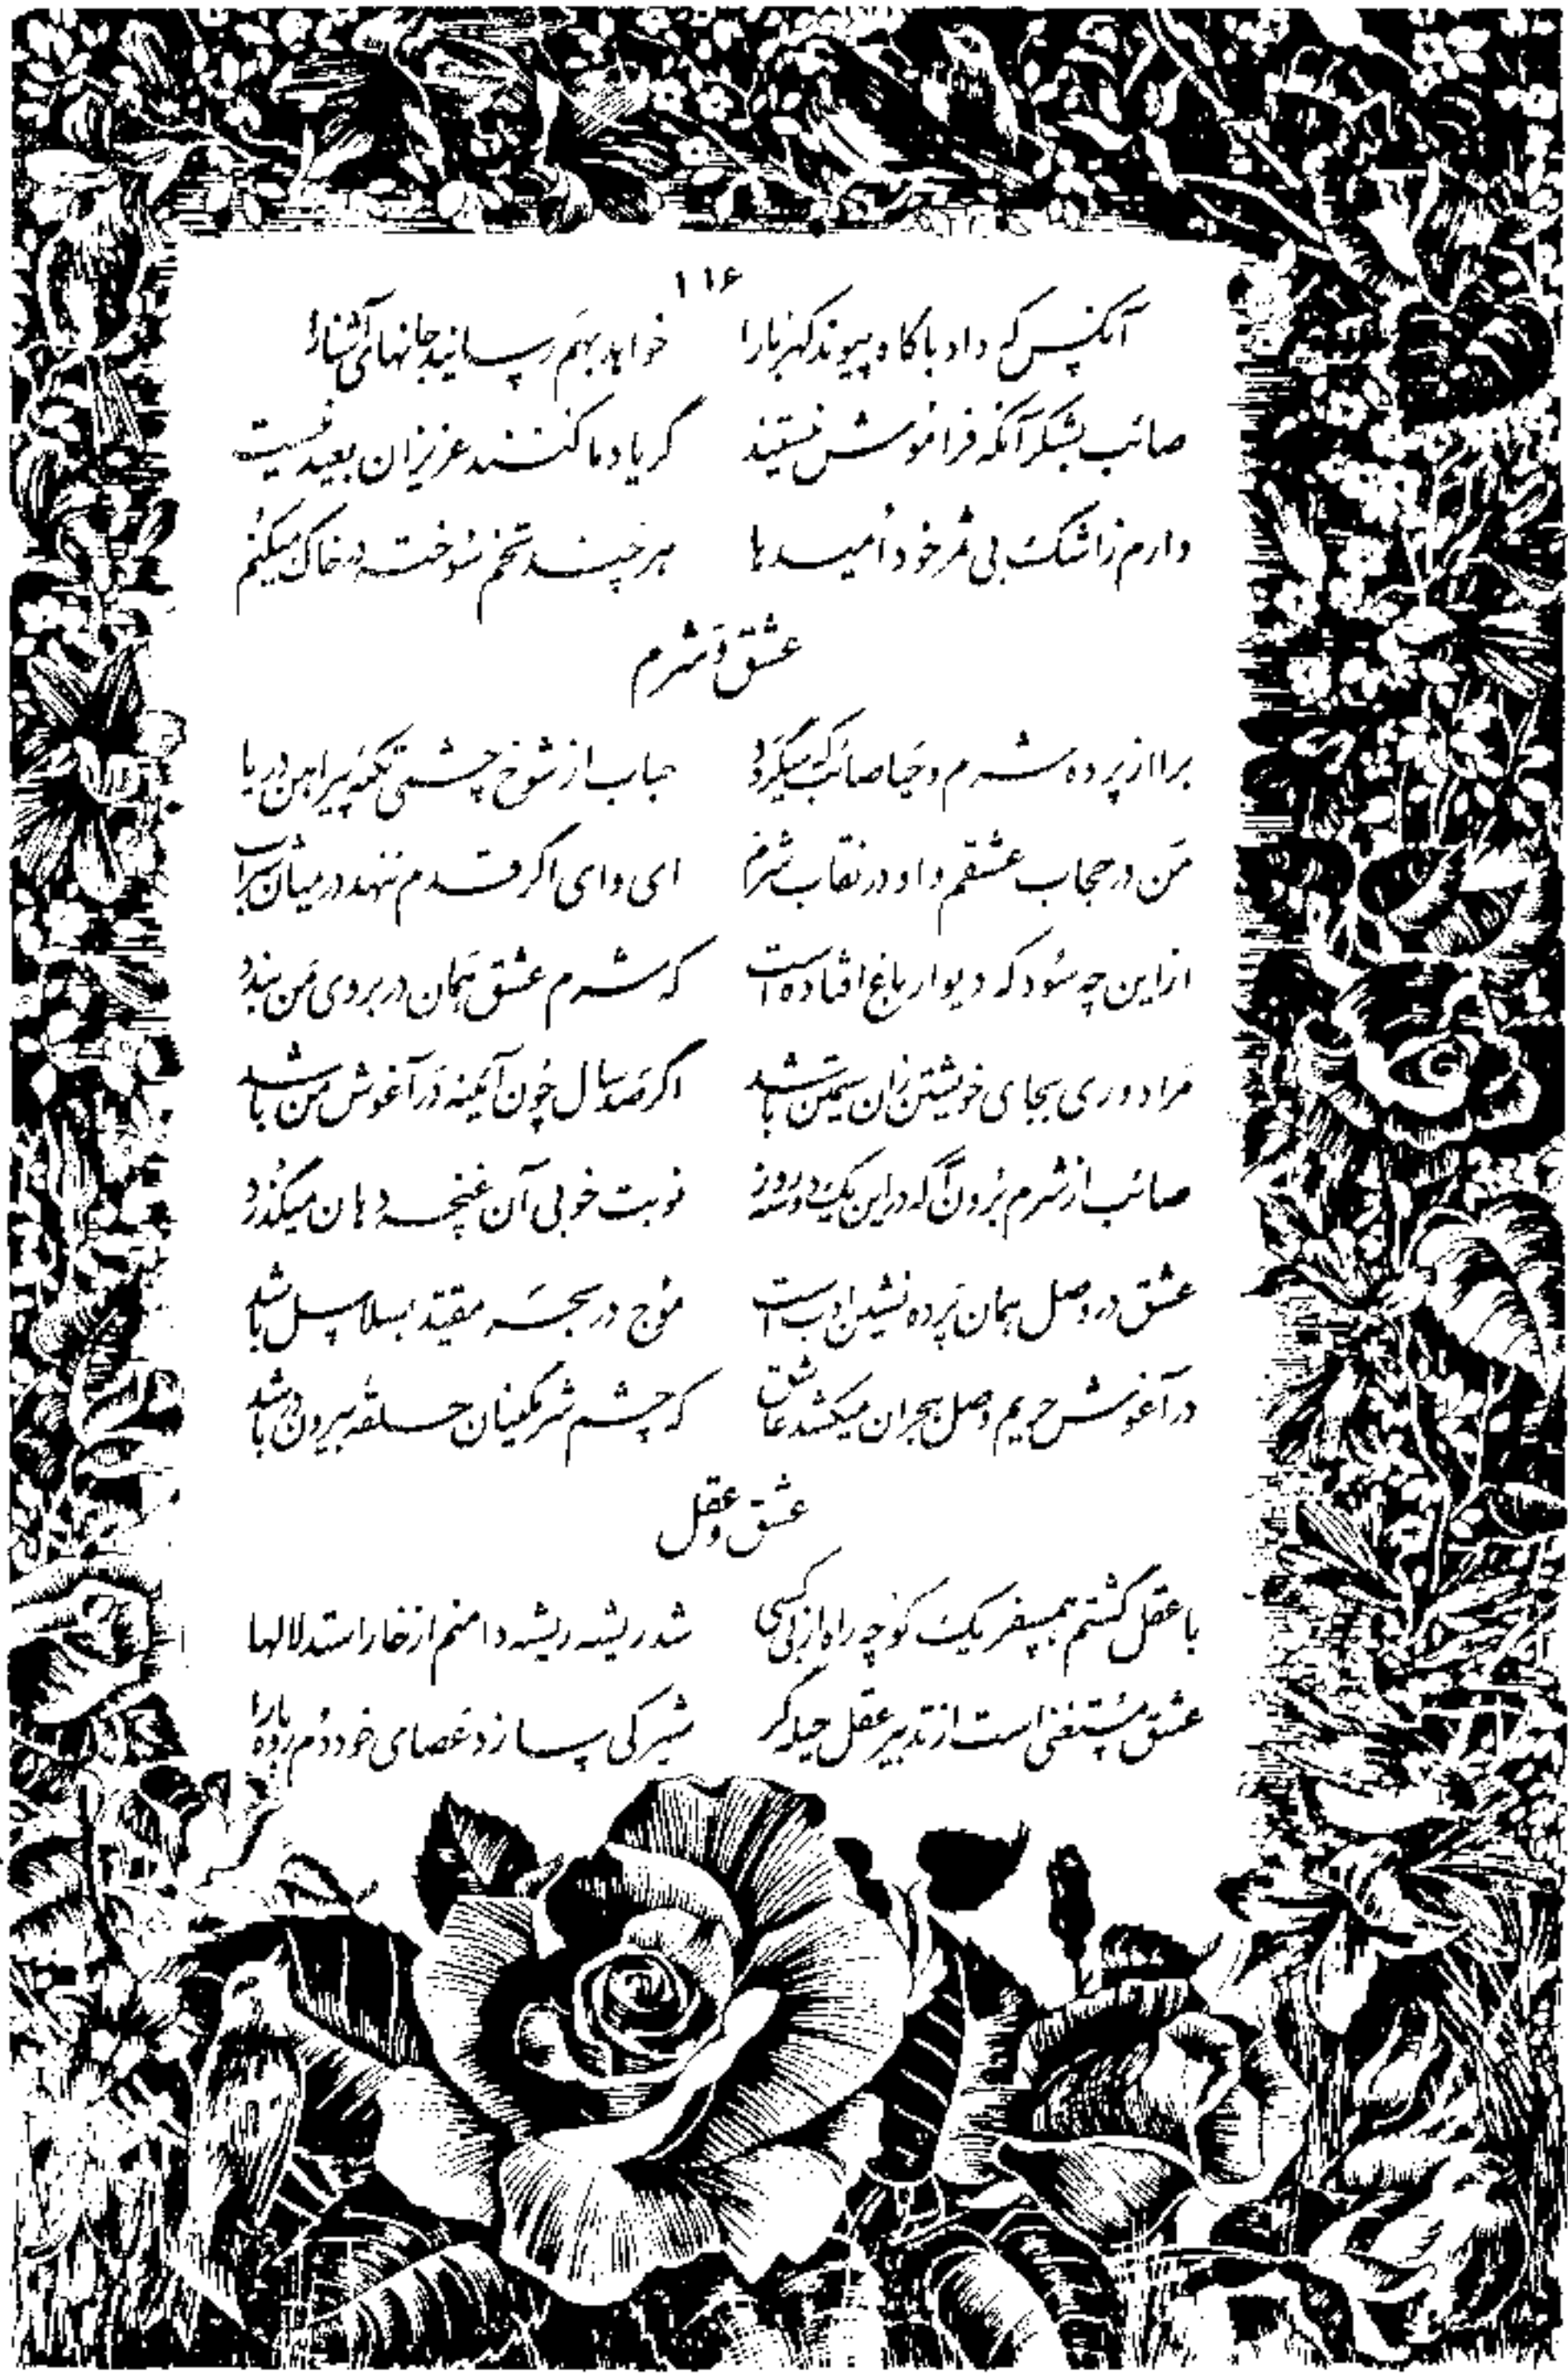 ۱۱۶
آنکس که داد با کاه پیوند کهربا را خواهد بهم رسانید جانهای آشنا را
صائب بشکر آنکه فراموش نیستند گر یاد ما کنند عزیزان بعید نیست
دارم ز اشک بی ثمر خود اُمیدها هر چند تخم سوخته در خاک میکنم
عشق و شرم
برا از پرده شرم و حیا صائب که میگردد حباب از شوخ چشمی تکمهٔ پیراهن دریا
من در حجاب عشقم و او در نقاب شرم ای وای اگر قدم ننهد در میان شراب
از این چه سود که دیوار باغ افتاده است که شرم عشق همان در بروی من بندد
مرا دوری بجای خویشتن زان سیمتن باشد اگر صد سال چون آیینه در آغوش من باشد
صائب از شرم برون آ که در این یک دو سه روز نوبت خوبی آن غنچه دهان میگذرد
عشق در وصل همان پرده نشین ادب است موج در بحر مقید بسلاسل باشد
در آغوش حریم وصل هجران میکشد عاشق که چشم شرمگینان حلقهٔ بیرون در باشد
عشق و عقل
با عقل گشتم همسفر یک کوچه راه از بی کسی شد ریشه ریشه دامنم از خار استدلالها
عشق مستغنی است از تدبیر عقل حیله گر شیر کی سازد عصای خود دُم روباه را